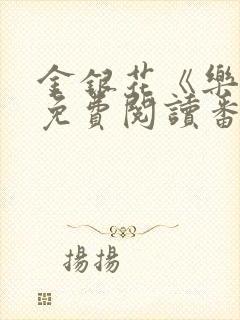 金銀花《樂
免費閱讀番
揚揚